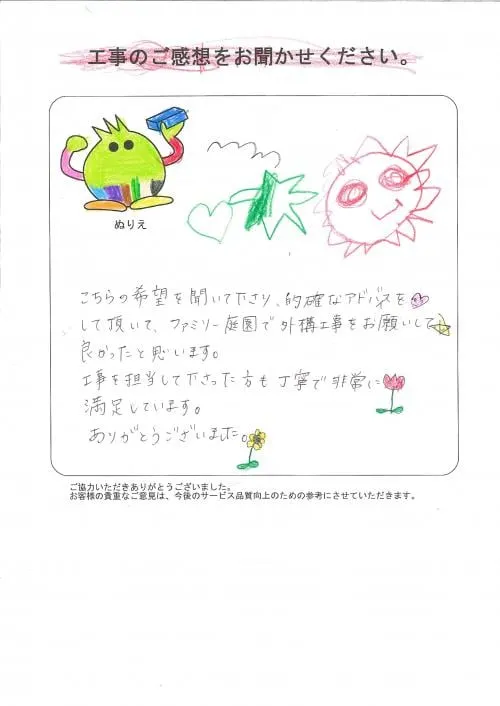 工事のご感想をお聞かせください。
ぬりえ
こちらの希望を聞いて下さり、的確なアドバイスを
して頂いて、ファミリー庭園で外構工事をお願いして
良かったと思います。
工事を担当して下さった方も丁寧で非常に
満足しています。
ありがとうございました。
ご協力いただきありがとうございました。
お客様の貴重なご意見は、今後のサービス品質向上のための参考にさせていただきます。